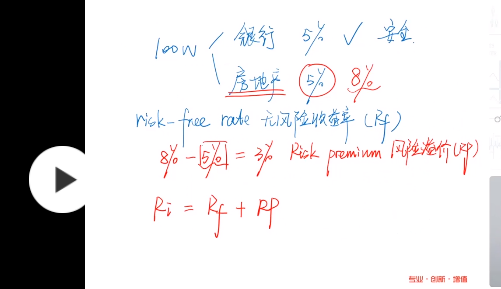 100W 银行 5% ✓ 安全.
房地产 5% 8%
risk-free rate 无风险收益率 (Rf)
8% - 5% = 3% Risk premium 风险溢价 (RP)
Ri = Rf + RP
专业·创新·增值